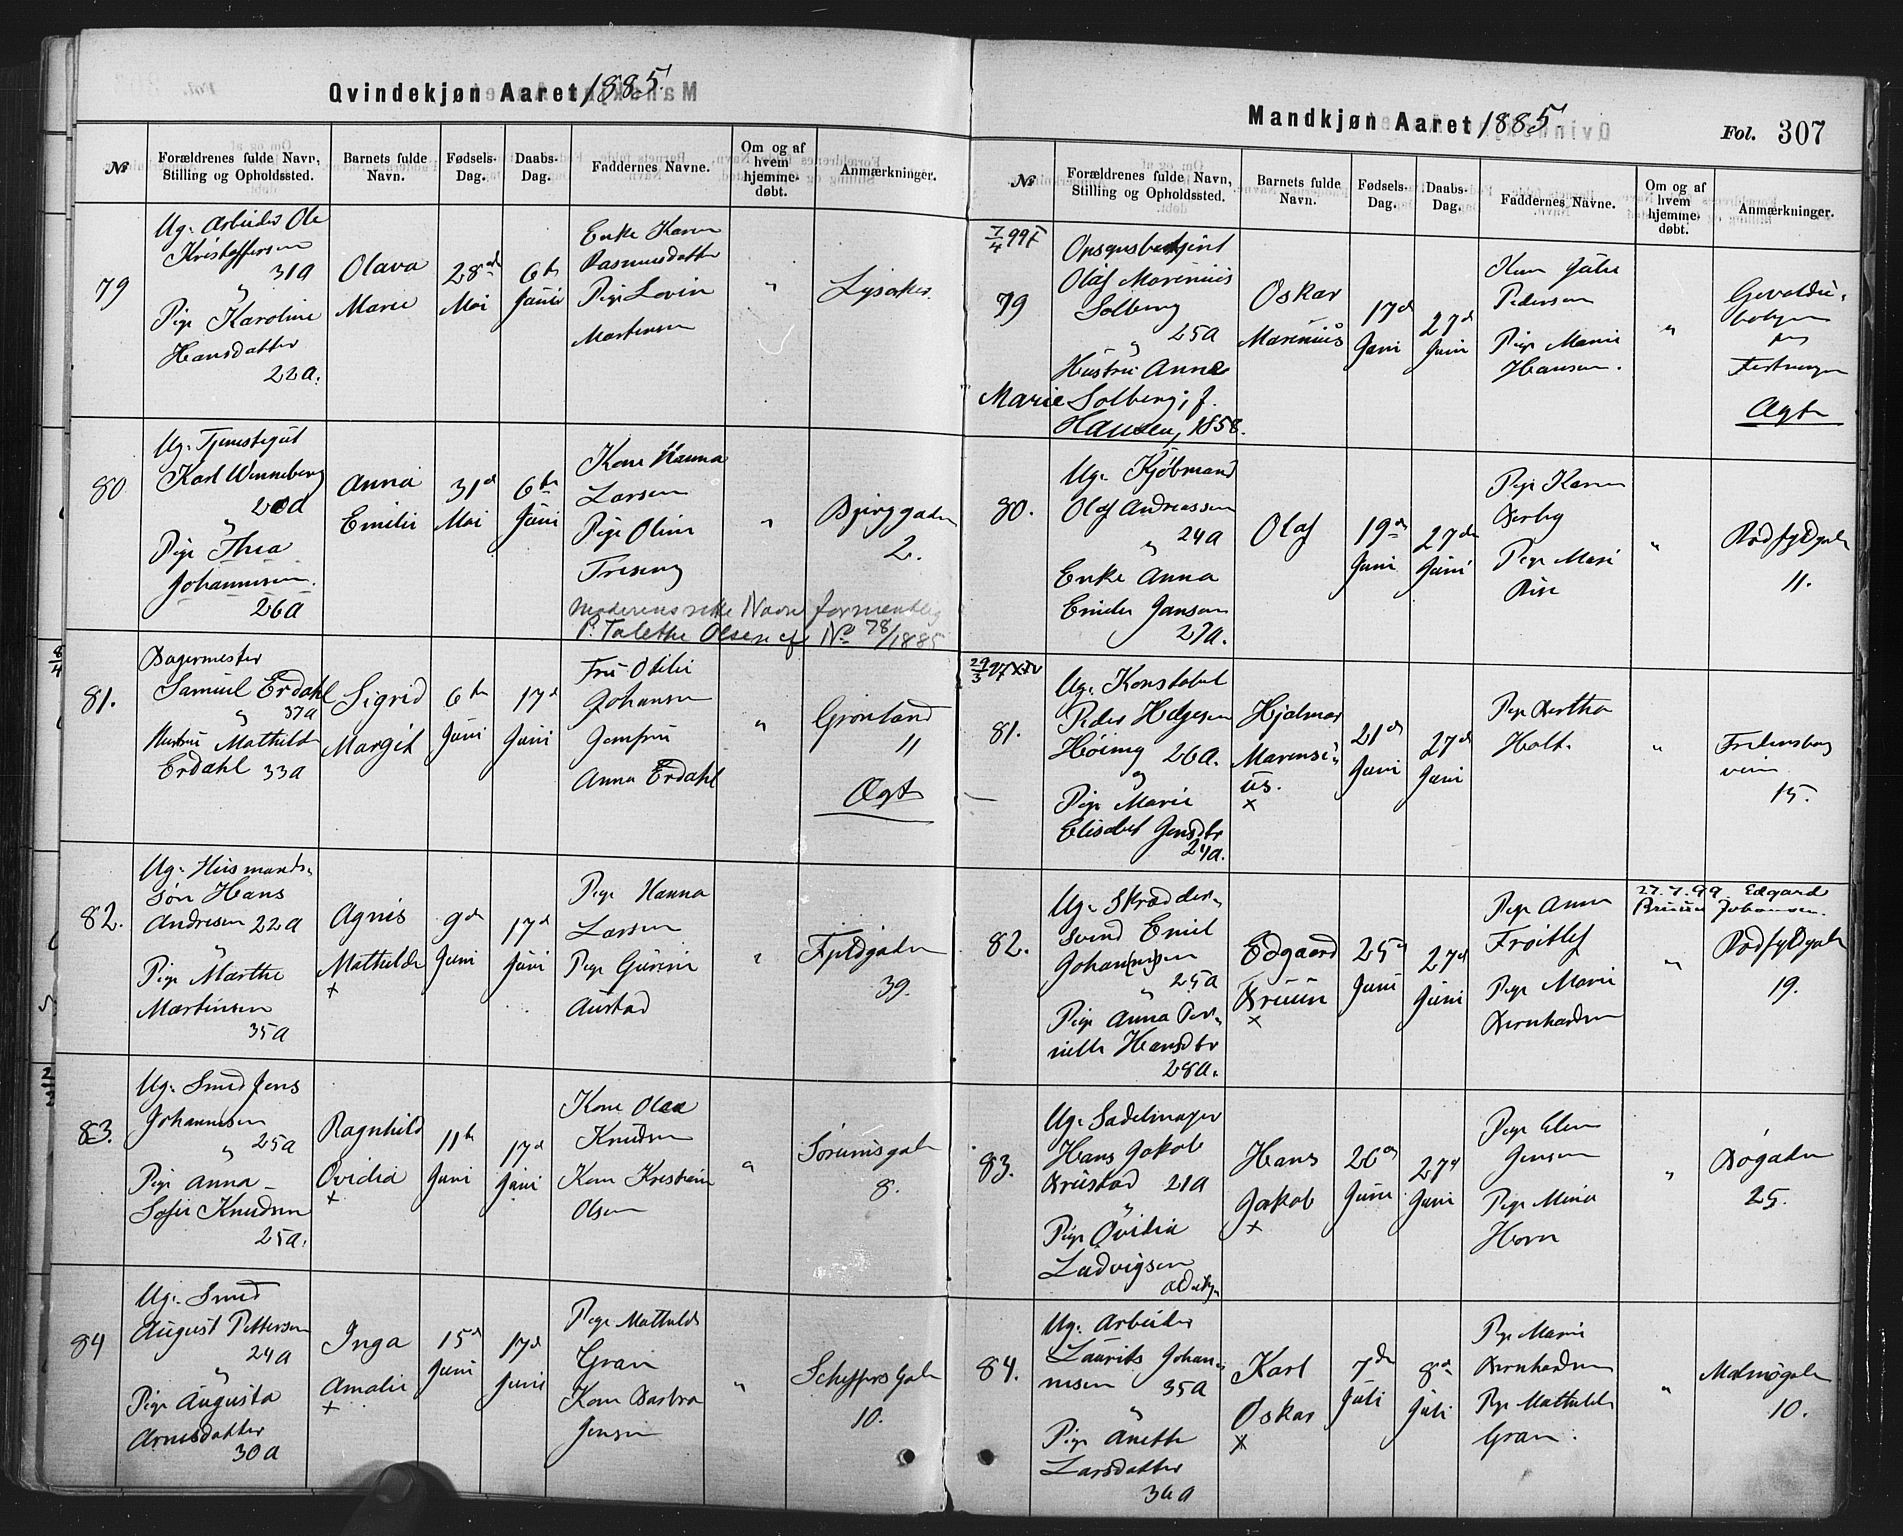 Qvindekjøn Aaret 1885.
№
Forældrenes fulde Navn,
Stilling og Opholdssted.
Barnets fulde
Navn.
Fødsels-
Dag.
Daabs-
Dag.
Faddernes Navne.
Om og af
hvem
hjemme-
døbt.
Anmærkninger.
79
Ug. Arbeider Ole
Kristoffersen
31 A
"
Pige Karoline
Hansdatter
22 A.
Olava
Marie
28de
Mai
6te
Juni
Enke Karen
Rasmusdatter
Pige Lovin
Martensen
"
Lysaker.
80
Ug. Tjenestegut
Karl Wenneberg
"
Pige Thea
Johannesen.
26 A
Anna
Emilie
31d
Mai
6te
Juni
Kone Hanna
Larsen
Pige Oline
"
2.
Moderens rette Navn formentlig
P. Talette Olsen cf No 78/1885
8/4
81.
Bagermester
Samuel Erdahl
" 37 A
Hustru Mathilde
Erdahl 33 A
Sigrid
Margit
6te
Juni
17d
Juni
Fru Otilie
Johansen
Jomfru
Anna Erdahl
"
Grønland
11
Ægte
82.
Ug. Husmands-
søn Hans
Andresen 22 A
"
Pige Marthe
Martinsen
35 A
Agnes
Mathilde
x
9de
Juni
17d
Juni
Pige Hanna
Larsen
Pige Gurine
Austad
"
Fjeldgaden
39.
83.
Ug. Smed Jens
Johannesen
" 25 A
Pige Anna
Sofie Knudsen
25 A.
Ragnhild
Ovidia
x
11te
Juni
17d
Juni
Kone Olea
Knudsen
Kone Kristine
Olsen
"
Sørumsgaden
8.
84
Ug. Smed
August Pettersen
24 A
"
Pige Augusta
Arnesdatter
30 A
Inga
Amalie
x
15d
Juni
17d
Juni
Pige Mathilde
Gran
Kone Barbra
Jensen
"
Scheffers Gade
10.
Mandkjøn Aaret 1885
Fol. 307
№
Forældrenes fulde Navn,
Stilling og Opholdssted.
Barnets fulde
Navn.
Fødsels-
Dag.
Daabs-
Dag.
Faddernes Navne.
Om og af
hvem
hjemme-
døbt.
Anmærkninger.
7/4 99 F
79
Opsynsbetjent
Olaf Marenius
Solberg
" 25 A
Hustru Anne
Marie Solberg, f.
Hansen, 1858.
Oskar
Marenius
17d
Juni
27d
Juni
Kone Julie
Pedersen
Pige Marie
Hansen.
"
Gevaldier-
boligen
paa
Festningen
Ægte
80.
Ug. Kjøbmand
Olaf Andreassen
" 24 A
Enke Anna
Emilie Jansen
27 A.
Olaf
19de
Juni
27de
Juni
Pige Karen
Berby
Pige Mari
"
Rodfyldgaden
11.
29/3 97
81.
Ug. Konstabel
Peder Helgesen
Høiing 26 A.
"
Pige Marie
Elisabet Jensdtr
24 A.
Hjalmar
Marensi-
us.
x
21d
Juni
27d
Juni
Pige Bertha
Holt.
"
Fredensborg
veien
15.
82.
Ug. Skrædder-
svend Emil
Johan(ne)sen
" 25 A
Pige Anna Per-
nille Hansdtr
28 A.
Edgard
Bruun
x
25d
Juni
27d
Juni
Pige Anna
Froitlef
Pige Marie
Bernhardsen
27.7.99. Edgard
Bruun Johansen.
"
Rodfyldgaden
19.
83.
Ug. Sadelmager
Hans Jakob
Brustad 21 A
"
Pige Ovidia
Ludvigsen
Hans
Jakob
x
26de
Juni
27d
Juni
Pige Elen
Jensen
Pige Mina
Horn
"
Bøgaden
25.
84.
Ug. Arbeider
Laurits Johan-
nesen 35 A
"
Pige Anette
Larsdatter
Karl
Oskar
x
7de
Juli
8d
Juli
Pige Marie
Bernhardsen
Pige Mathilde
Gran.
"
Malmøgaden
10.